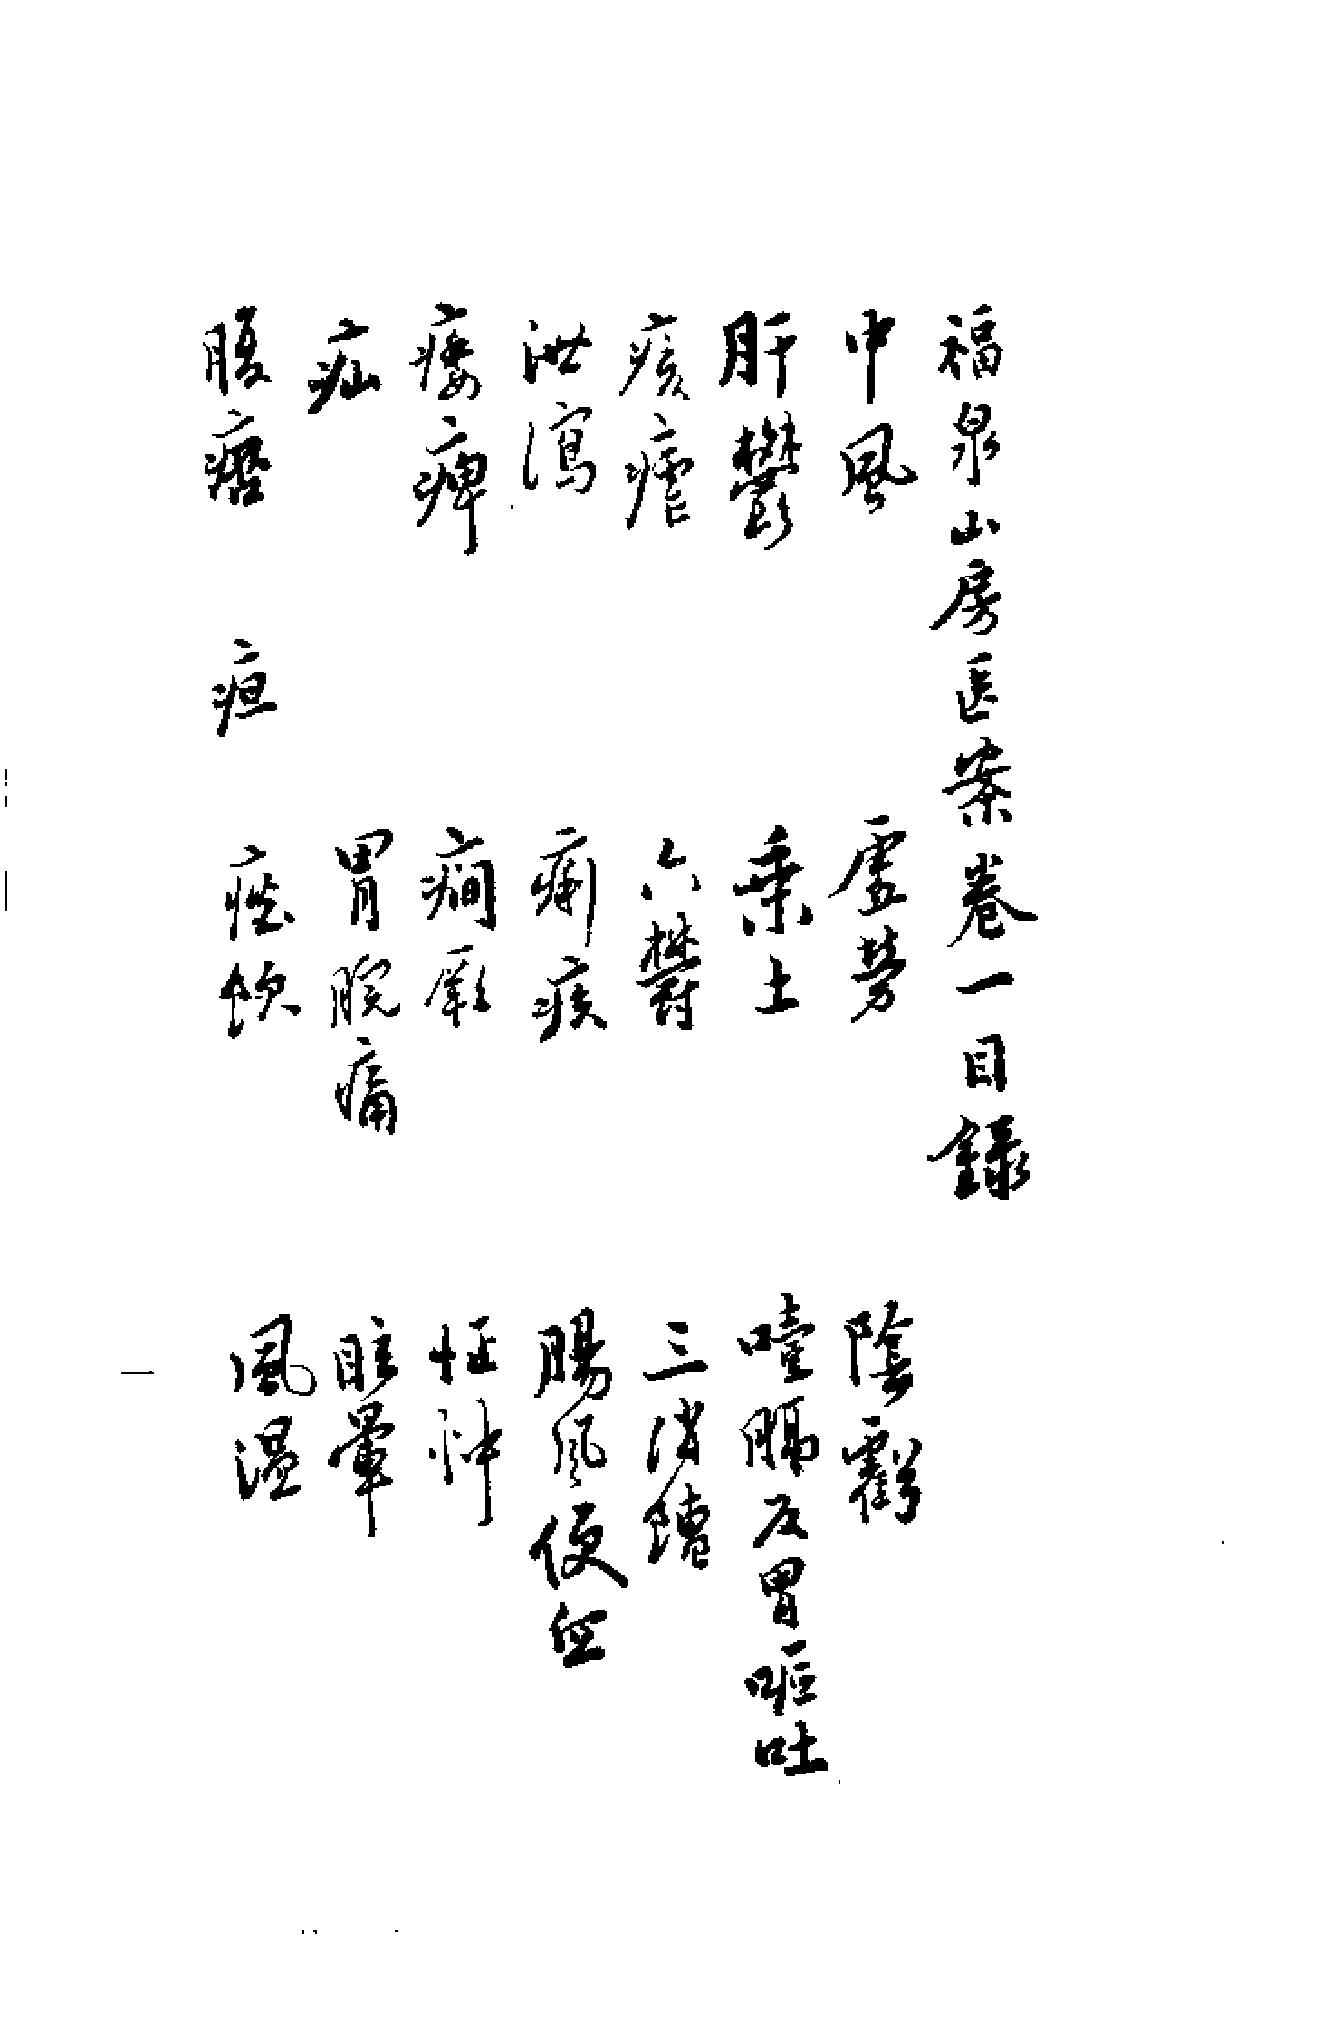 福泉山房医案卷一目錄
中風 虛勞 陰虧
肝鬱 乗土 噎膈反胃嘔吐
痎瘧 六鬱 三消
泄瀉 痢疾 腸風便血
痿痺 癇厥 怔忡
疝 胃脘痛 眩暈
腹 疸 痰飲 風温
一